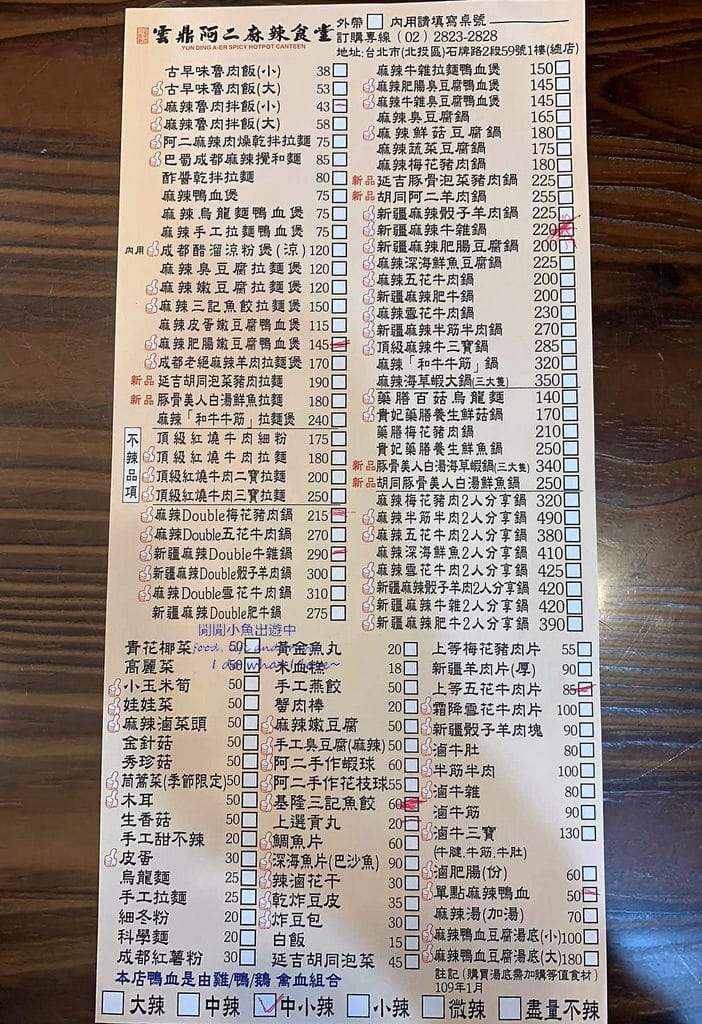 雲鼎阿二麻辣食堂
YUN DING A-ER SPICY HOTPOT CANTEEN
外帶 內用請填寫桌號
訂購專線 (02) 2823-2828
地址:台北市(北投區)石牌路2段59號1樓(總店)
古早味魯肉飯(小) 38
古早味魯肉飯(大) 53
麻辣魯肉拌飯(小) 43
麻辣魯肉拌飯(大) 58
阿二麻辣肉燥乾拌拉麵 75
巴蜀成都麻辣攪和麵 85
酢醬乾拌拉麵 80
麻辣鴨血煲 75
麻辣烏龍麵鴨血煲 75
麻辣手工拉麵鴨血煲 75
內用 成都醋溜涼粉煲(涼) 120
麻辣臭豆腐拉麵煲 120
麻辣嫩豆腐拉麵煲 120
麻辣三記魚餃拉麵煲 150
麻辣皮蛋嫩豆腐鴨血煲 115
麻辣肥腸嫩豆腐鴨血煲 145
成都老媽麻辣羊肉拉麵煲 170
新品 延吉胡同泡菜豬肉拉麵 190
新品 豚骨美人白湯鮮魚拉麵 180
麻辣「和牛牛筋」拉麵煲 240
不辣品項
頂級紅燒牛肉細粉 175
頂級紅燒牛肉拉麵 180
頂級紅燒牛肉二寶拉麵 200
頂級紅燒牛肉三寶拉麵 250
麻辣Double梅花豬肉鍋 215
麻辣Double五花牛肉鍋 270
新疆麻辣Double牛雜鍋 290
新疆麻辣Double骰子羊肉鍋 300
麻辣Double雪花牛肉鍋 310
新疆麻辣Double肥牛鍋 275
麻辣牛雜拉麵鴨血煲 150
麻辣肥腸臭豆腐鴨血煲 145
麻辣牛雜臭豆腐鴨血煲 145
麻辣臭豆腐鍋 165
麻辣鮮菇豆腐鍋 180
麻辣蔬菜豆腐鍋 175
麻辣梅花豬肉鍋 180
新品 延吉豚骨泡菜豬肉鍋 225
新品 胡同阿二羊肉鍋 255
新疆麻辣骰子羊肉鍋 225
新疆麻辣牛雜鍋 220
新疆麻辣肥腸豆腐鍋 200
麻辣深海鮮魚豆腐鍋 225
麻辣五花牛肉鍋 200
新疆麻辣肥牛鍋 200
麻辣雪花牛肉鍋 230
新疆麻辣半筋半肉鍋 270
頂級麻辣牛三寶鍋 285
麻辣「和牛牛筋」鍋 320
麻辣海草蝦大鍋(三大隻) 350
藥膳百菇烏龍麵 140
貴妃藥膳養生鮮菇鍋 170
藥膳梅花豬肉鍋 210
貴妃藥膳養生鮮魚鍋 250
新品 豚骨美人白湯海草蝦鍋(三大隻) 340
新品 胡同豚骨美人白湯鮮魚鍋 250
麻辣梅花豬肉2人分享鍋 320
麻辣半筋半肉2人分享鍋 490
麻辣五花牛肉2人分享鍋 380
麻辣深海鮮魚2人分享鍋 410
麻辣雪花牛肉2人分享鍋 425
新疆麻辣骰子羊肉2人分享鍋 420
新疆麻辣牛雜2人分享鍋 420
新疆麻辣肥牛2人分享鍋 390
閒閒小魚出遊中
青花椰菜 50
高麗菜 50
小玉米筍 50
娃娃菜 50
麻辣滷菜頭 50
金針菇 50
秀珍菇 50
茼蒿菜(季節限定) 50
木耳 50
生香菇 50
手工甜不辣 20
皮蛋 30
烏龍麵 25
手工拉麵 25
細冬粉 20
科學麵 20
成都紅薯粉 30
黃金魚丸 20
米血糕 18
手工燕餃 20
蟹肉棒 20
麻辣嫩豆腐 50
手工臭豆腐(麻辣) 50
阿二手作蝦球 60
阿二手作花枝球 55
基隆三記魚餃 60
上選貢丸 20
鯛魚片 60
深海魚片(巴沙魚) 90
辣滷花干 30
乾炸豆皮 35
炸豆包 30
白飯 15
延吉胡同泡菜 45
上等梅花豬肉片 55
新疆羊肉片(厚) 90
上等五花牛肉片 85
霜降雪花牛肉片 100
新疆骰子羊肉塊 90
滷牛肚 80
半筋半肉 100
滷牛雜 80
滷牛筋 90
滷牛三寶 130
(牛腱、牛筋、牛肚)
滷肥腸(份) 60
單點麻辣鴨血 50
麻辣湯(加湯) 70
麻辣鴨血豆腐湯底(小) 100
麻辣鴨血豆腐湯底(大) 180
註記(購買湯底需加購等值食材)
109年1月
本店鴨血是由雞/鴨/鵝 禽血組合
大辣 中辣 中小辣 小辣 微辣 盡量不辣